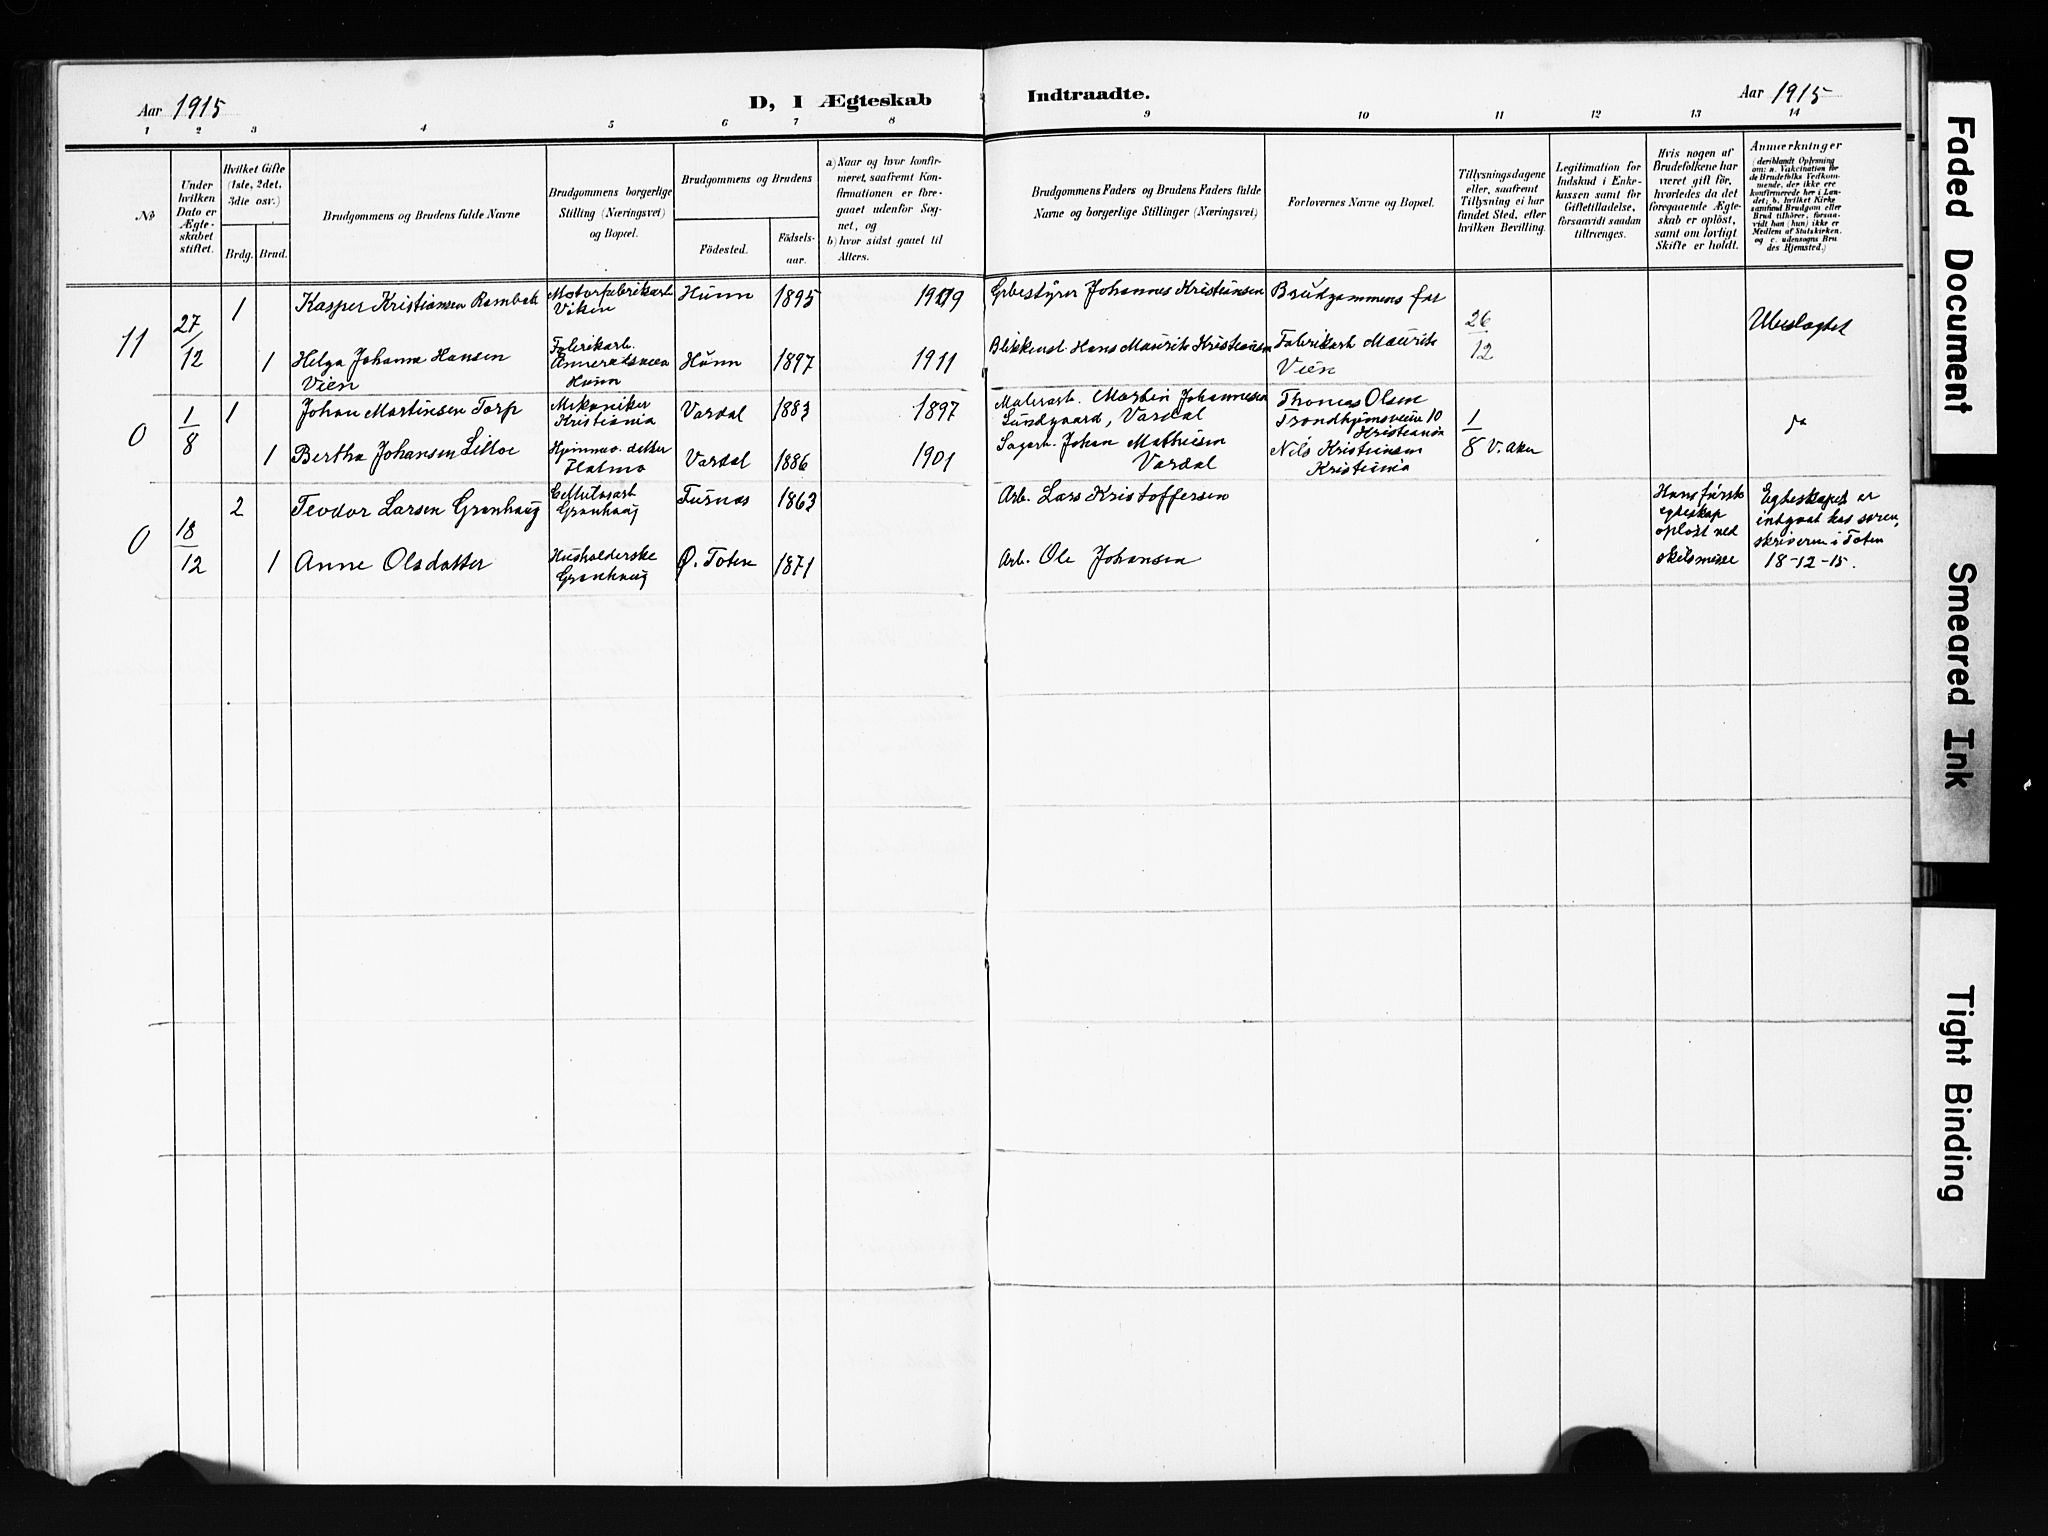 Aar 1915
D, I Ægteskab Indtraadte.
Aar 1915
1 2 3 4 5 6 7 8 9 10 11 12 13 14
№
Under hvilken Dato er Ægte-skabet stiftet.
Hvilket Gifte (1ste, 2det, 3die osv.)
Brdg. Brud.
Brudgommens og Brudens fulde Navne
Brudgommens borgerlige Stilling (Næringsvei) og Bopæl.
Brudgommens og Brudens
Födested.
Födsels-aar.
a) Naar og hvor konfir-meret, saafremt Kon-firmationen er fore-gaaet udenfor Sog-net, og
b) hvor sidst gaaet til Alters.
Brudgommens Faders og Brudens Faders fulde Navne og borgerlige Stillinger (Næringsvei)
Forlovernes Navne og Bopæl.
Tillysningsdagene eller, saafremt Tillysning ei har fundet Sted, efter hvilken Bevilling.
Legitimation for Indskud i Enke-kassen samt for Giftetilladelse, forsaavidt saadan tiltrenges.
Hvis nogen af Brudefolkene har været gift för, hvorledes da det foregaaende Ægte-skab er oplöst, samt om lovligt Skifte er holdt.
Anmærkninger
(deriblandt Oplysning om: a. Vakcination for de Brudefolks Vedkom-mende, der ikke ere konfirmerede her i Lan-det; b. hvilket Kirke-samfund Brudgom eller Brud tilhörer, forsaa-vidt han (hun) ikke er Medlem af Statskirken, og c. udensogns Bru-des Hjemsted.)
11 27/12 1 Kasper Kristiansen Rambek Motorfabrikarb. Viken Hunn 1895 1909 Grbestyrer Johannes Kristiansen Brudgommens far 26/12 Ubeslagtet
1 Helga Johanna Hansen Vien Fabrikarb. Hunn Hunn 1897 1911 Blikkensl. Hans Maurits Kristiansen Fabrikarb. Maurits Vien
0 1/8 1 Johan Martinsen Torp Mekaniker Kristiania Vardal 1883 1897 Malerarb. Martin Johannesen Lundgaard, Vardal Thomas Olsen Trondhjemsveien 10 Kristiania 1/8 V. Aker
1 Bertha Johansen Lilloe Hjemmev. datter Vardal 1886 1901 Sagarb. Johan Mathisen Vardal Nils Kristiansen Kristiania
0 18/12 2 Teodor Larsen Grønhaug Cellulosarb. Grønhaug Furnes 1863 Arb. Lars Kristoffersen Hans første egteskap opløst ved skilsmisse Egteskapet er indgaat hos soren-skriveren i Toten 18-12-15.
1 Anne Olsdatter Husholderske Grønhaug Ø. Toten 1871 Arb. Ole Johansen
Faded Document
Smeared Ink
Tight Binding